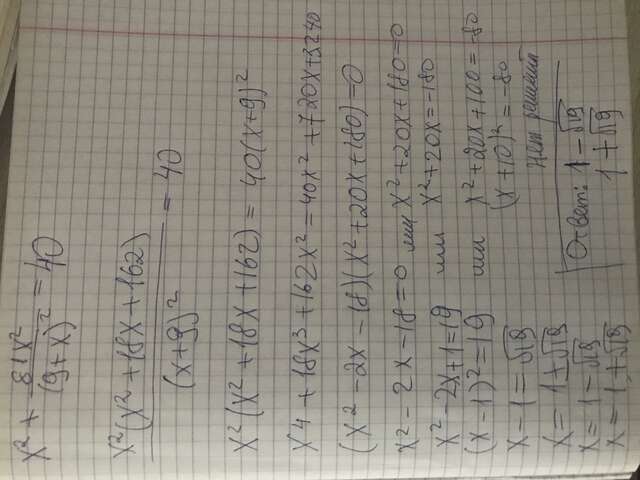 x² + 81x²/(9+x)² = 40
x²(x²+18x+162)/(x+9)² = 40
x²(x²+18x+162) = 40(x+9)²
x⁴+18x³+162x² = 40x²+720x+3240
(x²-2x-18)(x²+20x+180)=0
x²-2x-18=0 или x²+20x+180=0
x²-2x+1=19 или x²+20x=-180
(x-1)²=19 или x²+20x+100=-80
x-1=√19 (x+10)²=-80
x=1±√19 Нет решений
x=1-√19 Ответ: 1-√19
x=1+√19 1+√19